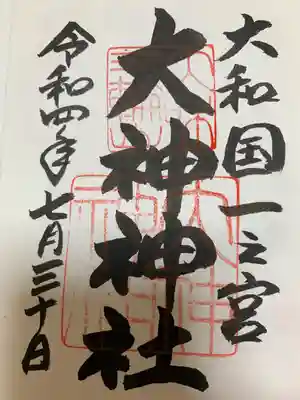 大和国一之宮
大神神社
令和四年七月三十日